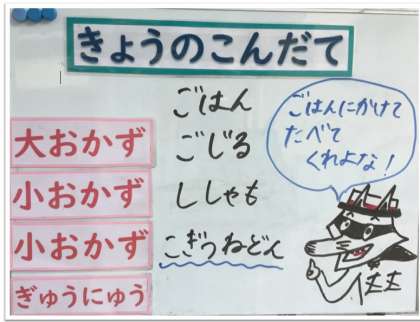 きょうのこんだて
ごはん
大おかず ごじる
小おかず ししゃも
小おかず こぎつねどん
ぎゅうにゅう
ごはんにかけて
たべて
くれよな！